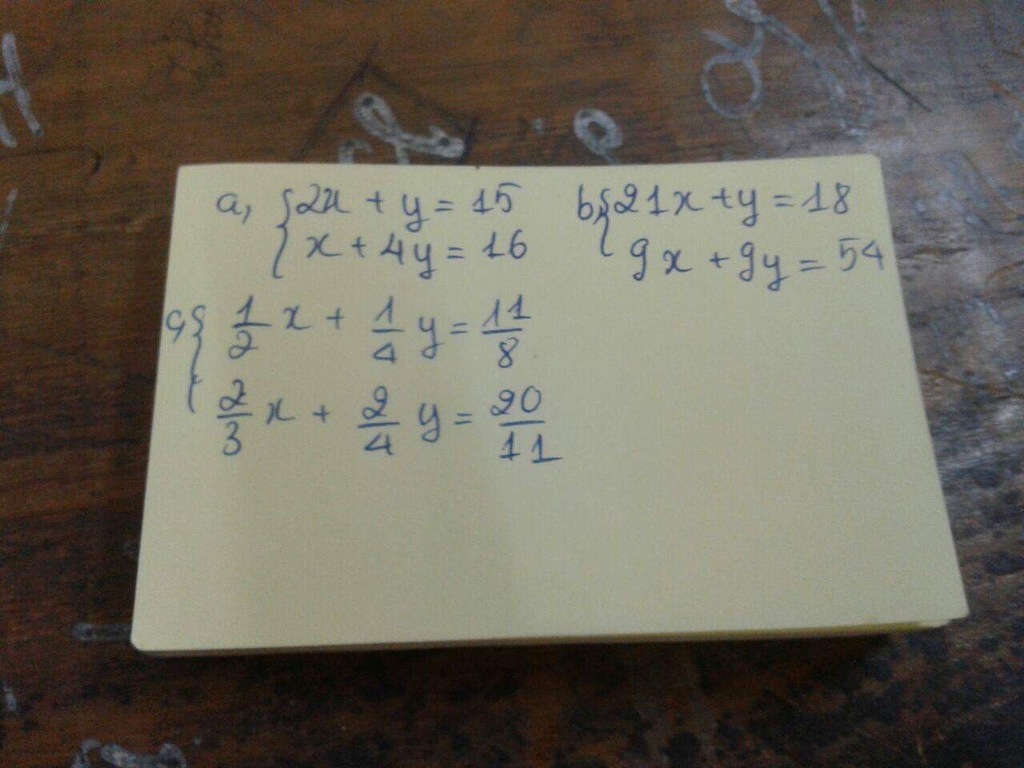 a, { 2x + y = 15
x + 4y = 16
b, { 21x + y = 18
9x + 9y = 54
c, { 1/2 x + 1/4 y = 11/8
2/3 x + 2/4 y = 20/11